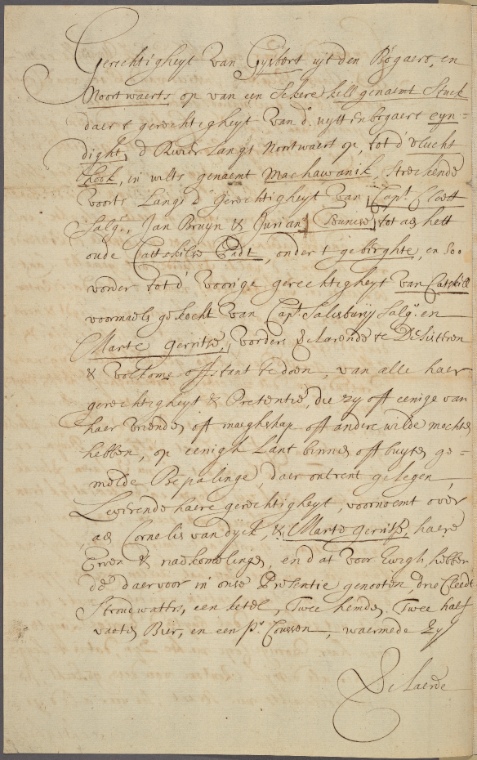 Gerechtigheyt van Gysbert uyt den Bogaert, en
Noortwaerts op van een Sekere kell genaemt Stuck
daer t gerechtigheyt van d' uytt en bogaert eyn-
dight, d Rivier Langs Nortwaert op, tot d Vlucht
hoek, in wilts genaemt Machawanik, Streckende
voorts Langs d' gerechtigheyt van Capt
Salgr, Jan Bruyn & Jurian Teunise, tot aen hett
oude Cattskills Padt, onder t gebirghte, en soo
vorder tot d' voorige gerechtigheyt van Catskill
voormaels gekocht van Capt Salisburÿ Salgr en
Marte Gerritse, vorders Verklarende te Desisteren
& volkome offstant te doen, van alle haer
gerechtigheyt & Pretentie, die zy off eenige van
haer vrienden off maeghschap off andere wilde mochte
hebben, op eenigh Lant binnen off buyten ge-
melde Bepalinge, daer ontrent gelegen
Leverende haere gerechtigheyt, voornoemt over
aen Cornelis van dyck, & Marte Gerritse, haere
Erven & nackomelinge, en dat voor Ewigh, hebben
de daervoor in onse Presentie genooten, drie Cleede
Strouwatters, een ketel, Twee hemden, Twee half
vatten Bier, en een pr Coussen, waermede Zy